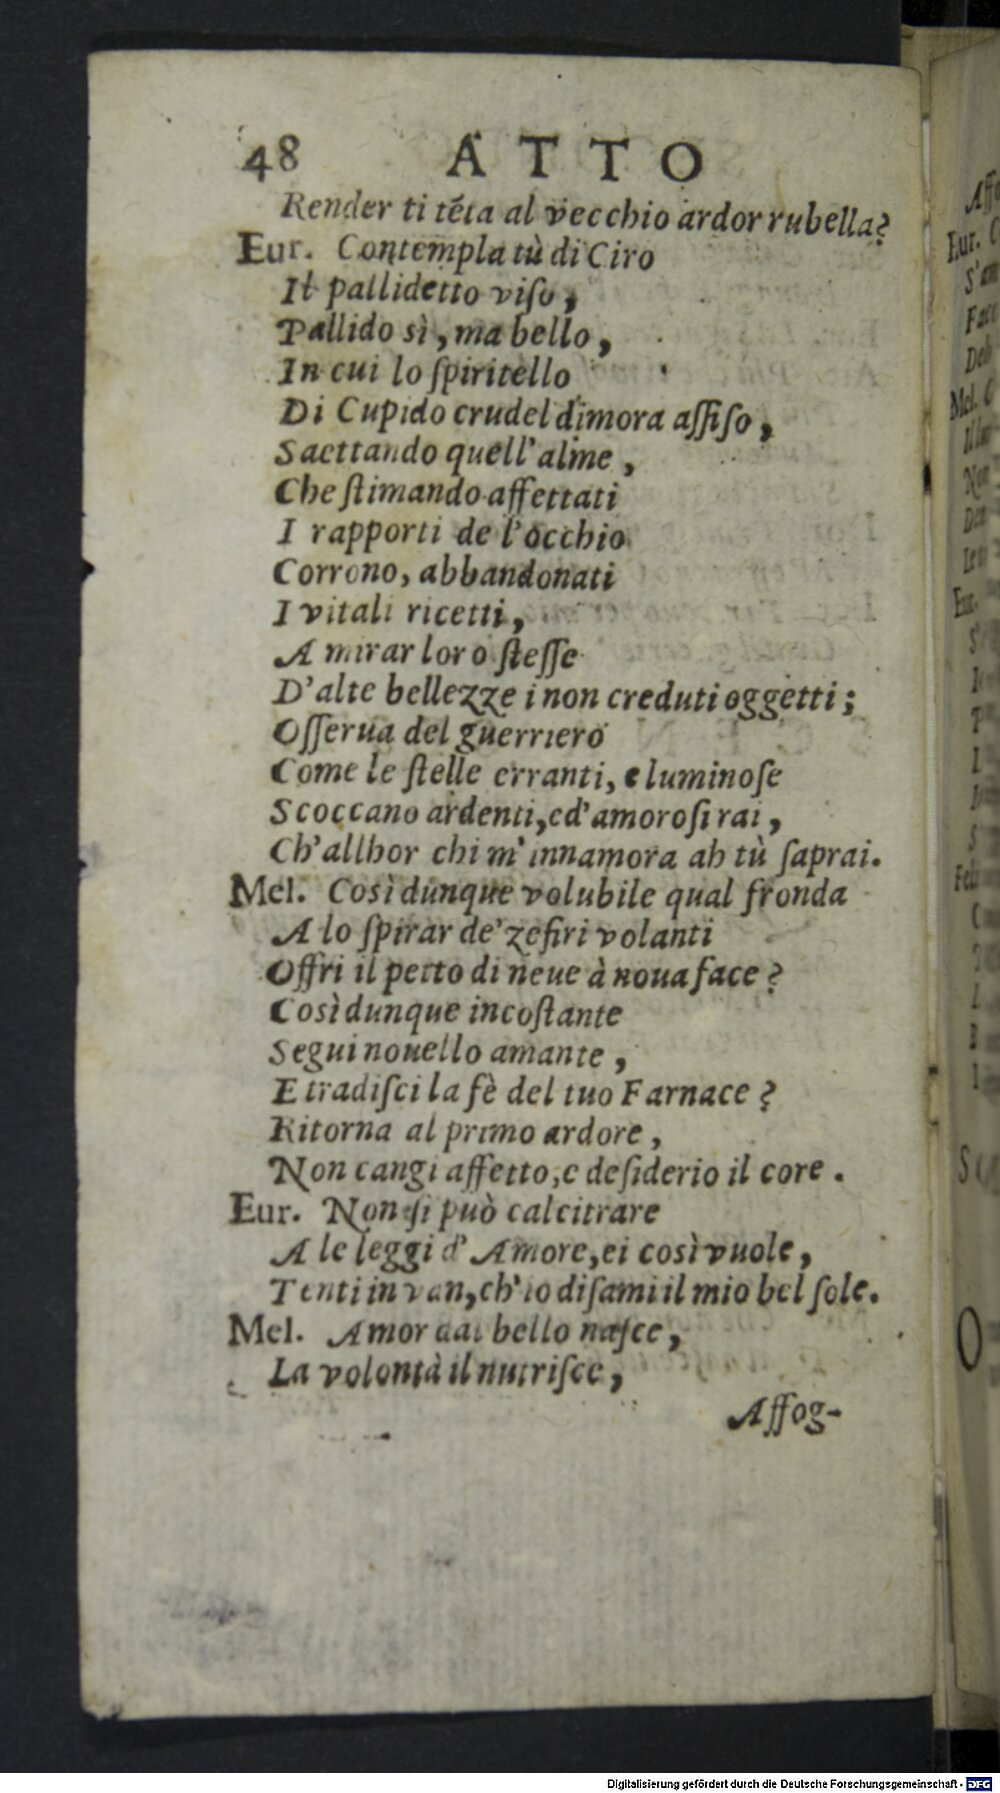 48 ATTO
Render ti tẽta al vecchio ardor rubella?
Eur. Contempla tù di Ciro
Il pallidetto viſo,
Pallido sì, ma bello,
In cui lo ſpiritello
Di Cupido crudel dimora aſſiſo,
Saettando quell'alme,
Che ſtimando affettati
I rapporti de l'occhio
Corrono, abbandonati
I vitali ricetti,
A mirar loro ſteſſe
D'alte bellezze i non creduti oggetti;
Oſſerua del guerriero
Come le ſtelle erranti, e luminoſe
Scoccano ardenti, ed'amoroſi rai,
Ch'allhor chi m'innamora ah tù ſaprai.
Mel. Così dunque volubile qual fronda
A lo ſpirar de' zefiri volanti
Offri il petto di neue à noua face?
Così dunque incoſtante
Segui nouello amante,
E tradiſci la fè del tuo Farnace?
Ritorna al primo ardore,
Non cangi affetto, e deſiderio il core.
Eur. Non ſi può calcitrare
A le leggi d'Amore, ei così vuole,
Tenti in van, ch'io diſami il mio bel ſole.
Mel. Amor dal bello naſce,
La volontà il nutriſce,
Aſſog-
Aff
Eur. C
S'am
Face
Deh
Mel. C
Non
Eur.
Digitalisierung gefördert durch die Deutsche Forschungsgemeinschaft - DFG